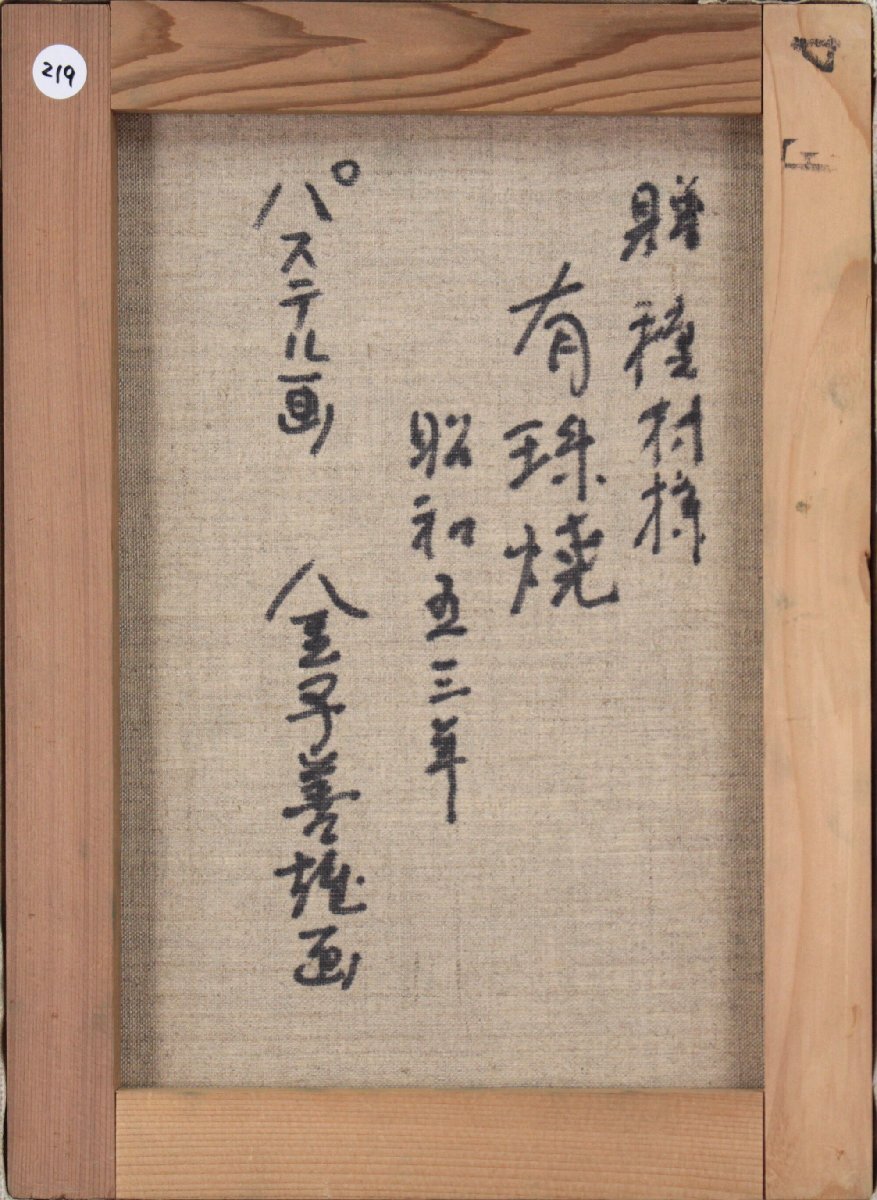 219
贈 種村様
有珠焼
昭和五三年
パステル画 金子善雄画